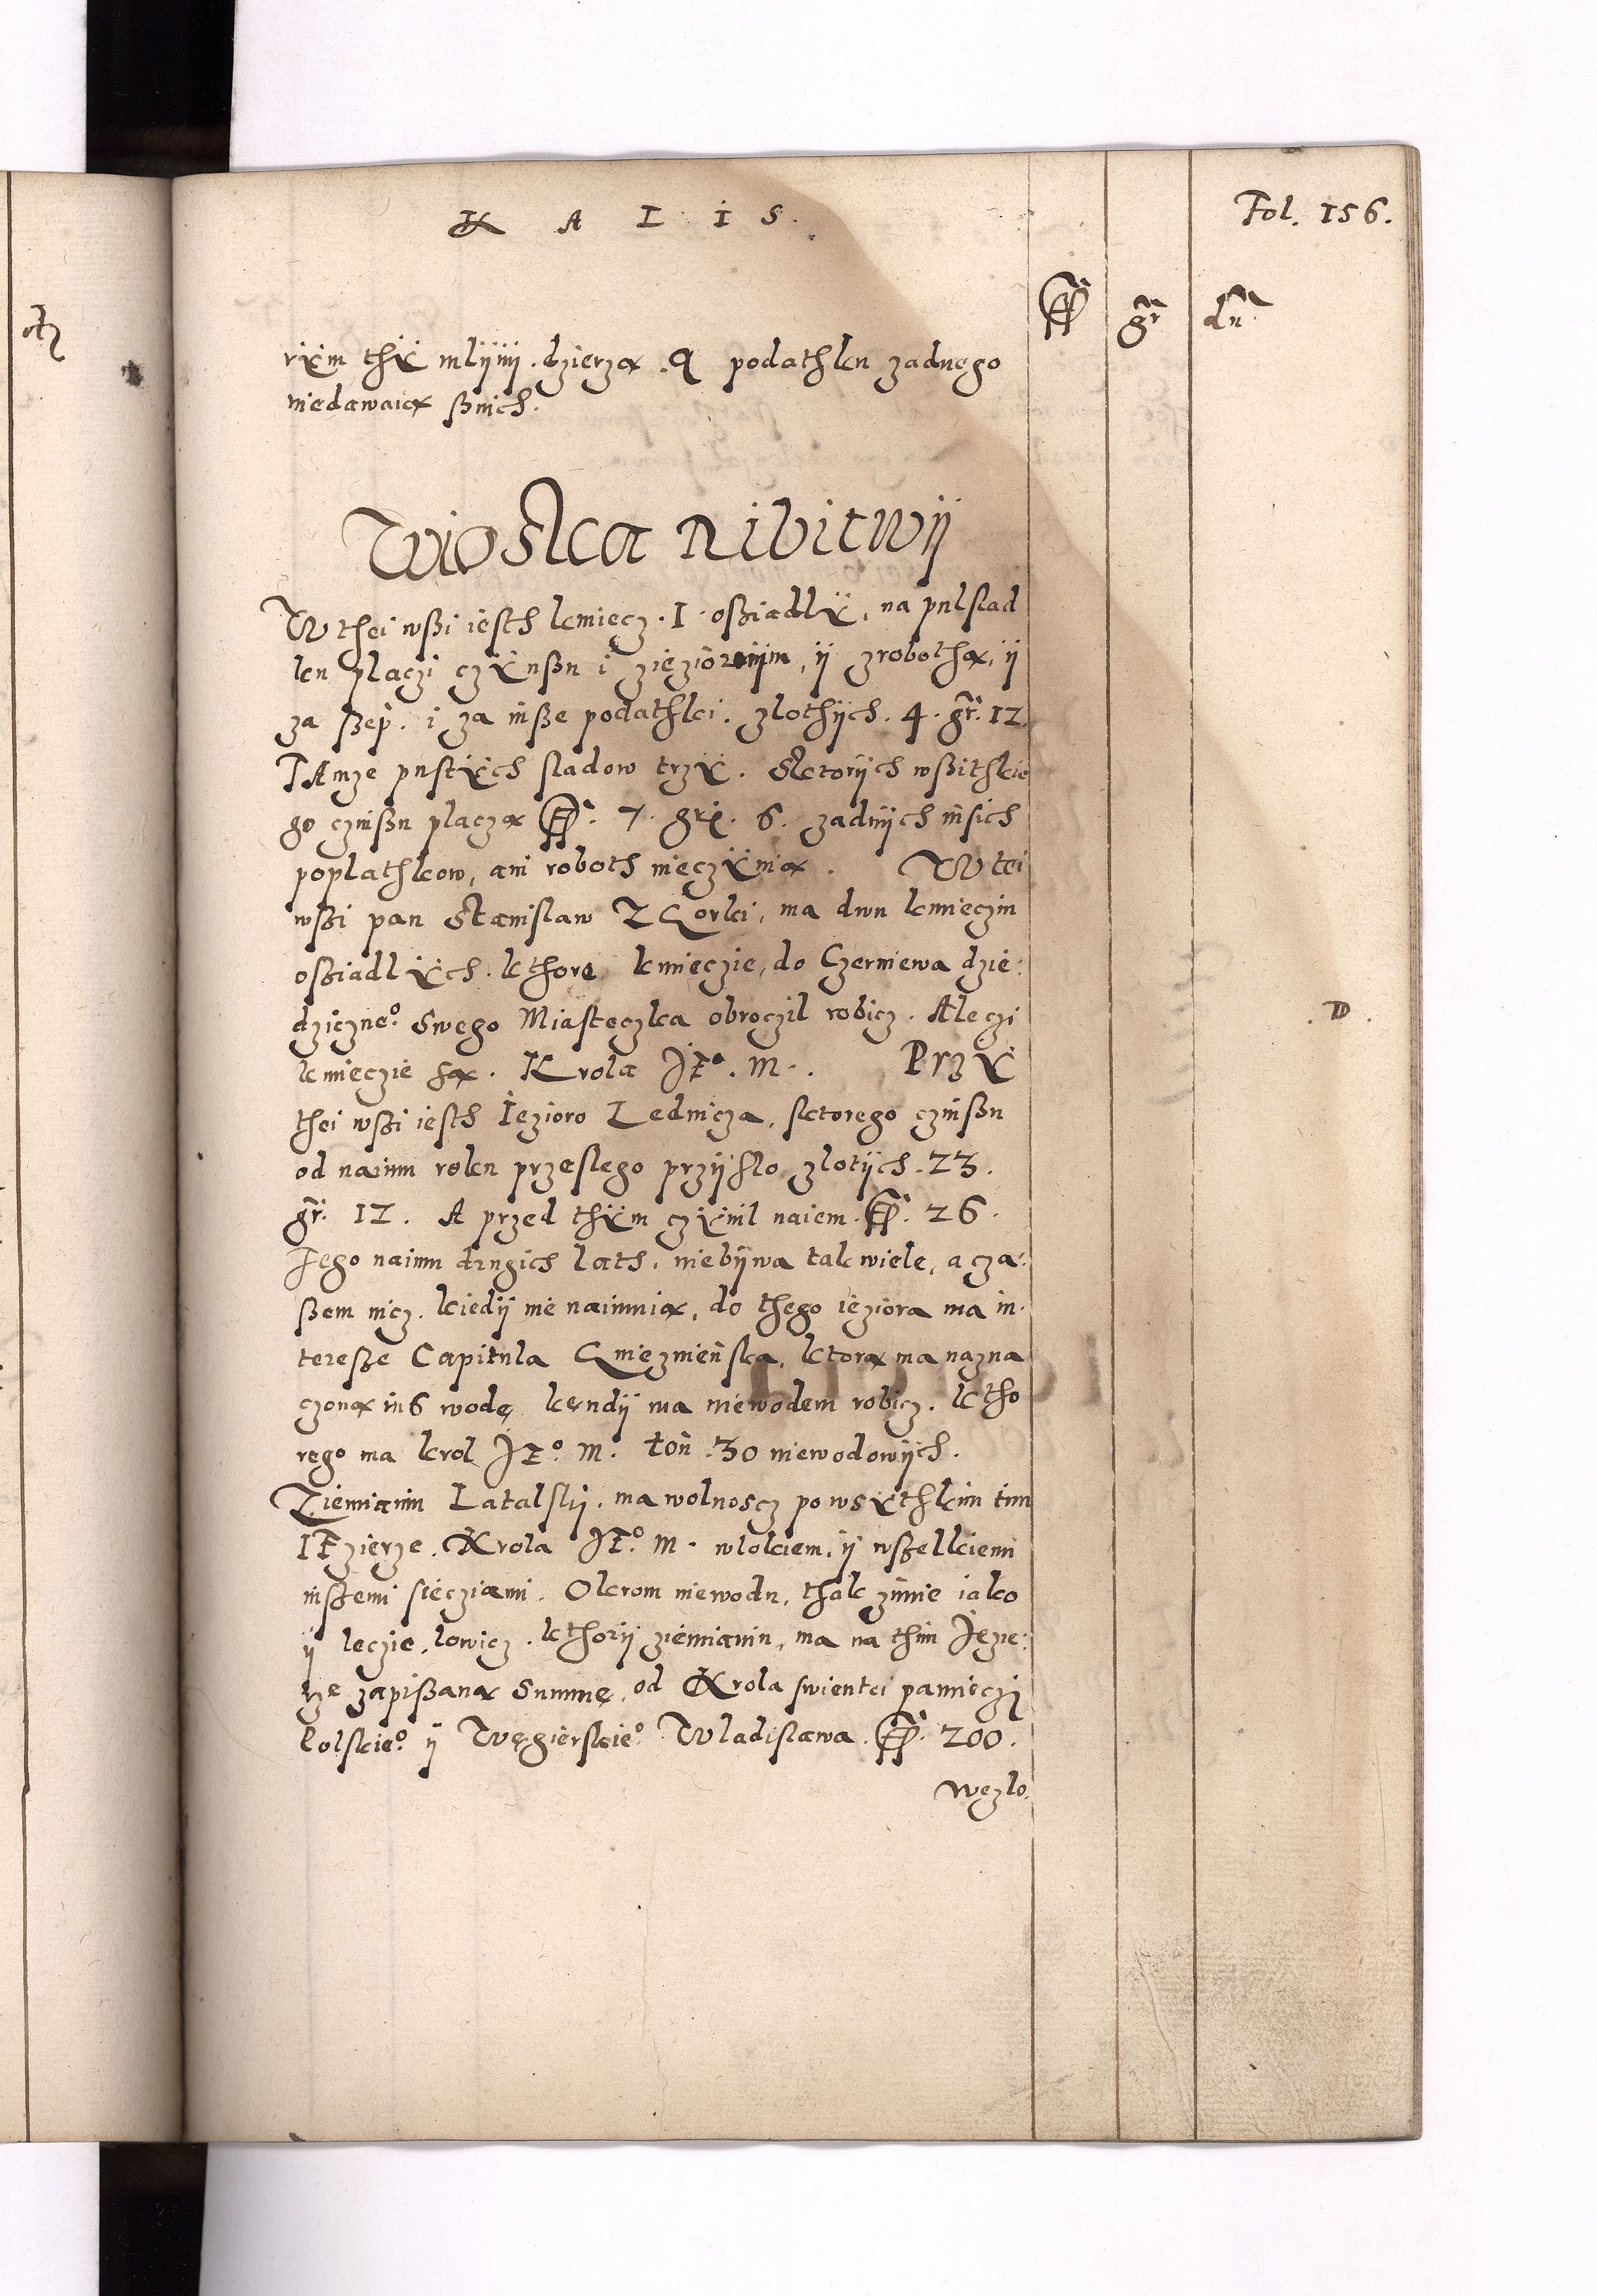 K A L I S.
Fol. 156.
fl gr dn
rÿm thÿ mlijnij. dzierzą. A podathku zadnego
niedawaią ßnich.
Wioska Ribitwÿ
W thei wßi iesth kmiecz. 1. oßiadlÿ, na pulslad
ku placzi czÿnßu i zieziornijm, ij zrobothą, ij
za ßep. i za inße podathki. zlothÿch. 4. gr. 12.
TAmze pustÿch sladow trzÿ. Sktorÿch wßithkie
go czinßu placzą fl. 7. gri. 6. zadnÿch insich
poplathkow, ani roboth nieczÿnią. W tei
wßi pan Stanislaw Z Gorki, ma dwu kmieczin
oßiadlÿch. kthore kmieczie, do Czerniewa dzie:
dziczneº. Swego Miasteczka obroczil robicz. Aleczi
kmieczie są. Krola JEº. M. Przÿ
thei wßi iesth Iezioro Lednicza, sktorego czinßu
od naimu roku przeslego przÿslo zlotÿch. 23.
gr. 12. A przed thÿm czÿnil naiem. fl. 26.
Jego naimu drugich lath, niebÿwa tak wiele, a cza:
ßem nicz. kiedij nie naimuią, do thego ieziora ma in:
tereße Capitula Gnieznieńska, ktorą ma nazna
czoną in6 wodę kędij ma niewodem robicz. ktho
rego ma krol JEº. M. toń. 30 niewodowÿch.
Ziemianin Latalskij. ma wolnoscz po wsÿthkim tim
IEzierze. Krola JEº. M. wlokiem, ij wßelkiemi
inßemi siecziami. Okrom niewodu, thak zimie iako
ij leczie, lowicz. kthorij ziemianin, ma na thim Iezie:
rze zapißaną Summę, od Krola swientei pamieczi
Polskieº. ij Węgierskieº. Wladislawa. fl. 200.
węzlo.
D